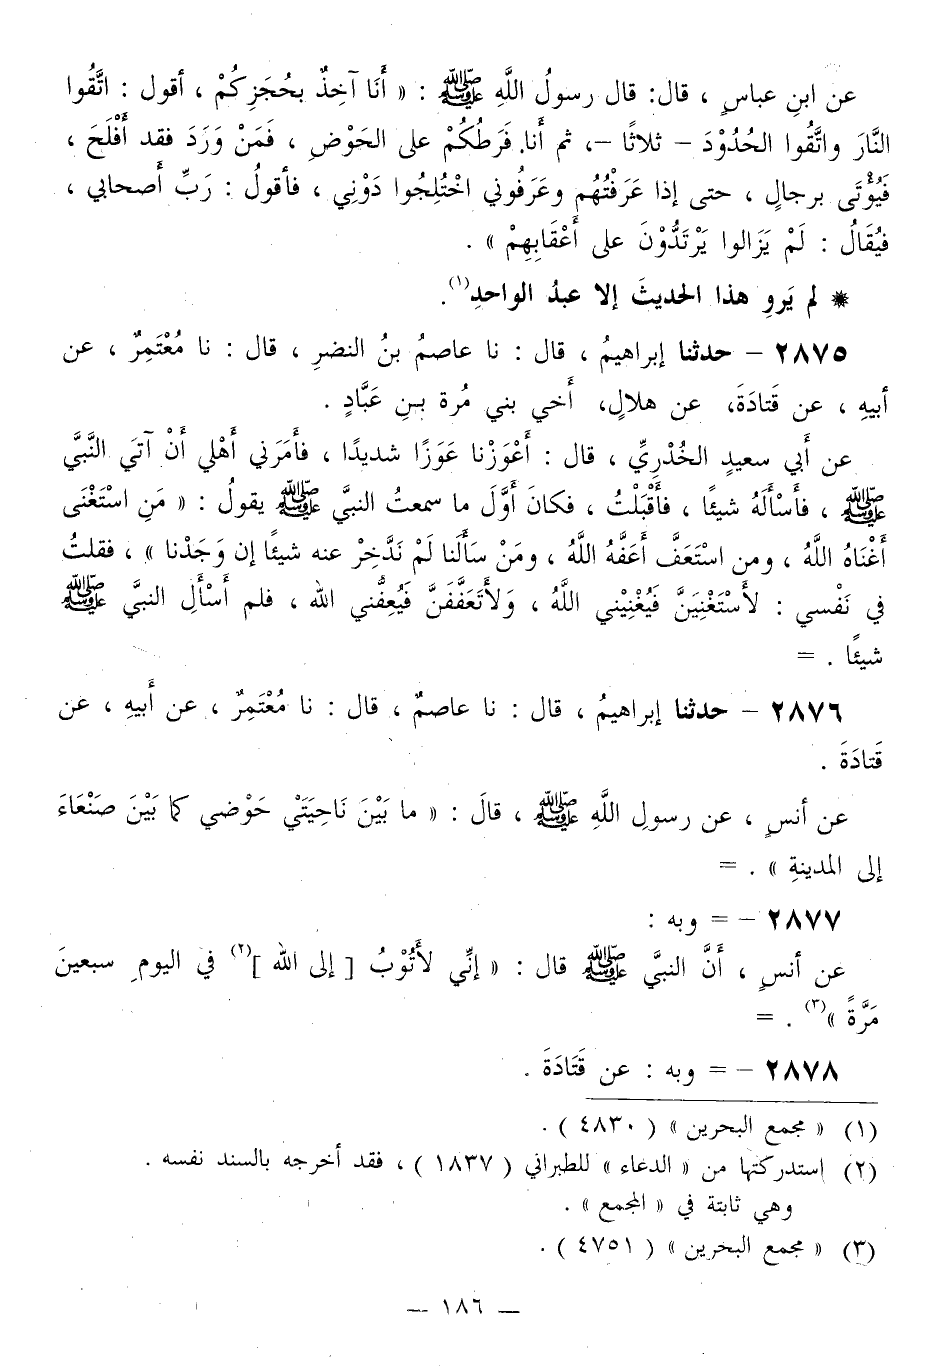 عن ابنِ عباسٍ ، قال: قال رسولُ اللَّهِ ﷺ : « أَنَا آخِذٌ بحُجَزِكُمْ ، أقول : اتَّقُوا
النَّارَ واتَّقُوا الحُدُوْدَ – ثلاثًا –، ثم أَنا. فَرَطُكُمْ على الحَوْضِ ، فَمَنْ وَرَدَ فقد أَفْلَحَ ،
فَيُؤْتَى برجالٍ ، حتى إذا عَرَفْتُهُم وعَرَفُوني اخْتُلِجُوا دَوْنِي ، فأقولُ : رَبِّ أَصحابي ،
فيُقَالُ : لَمْ يَزَالوا يَرْتَدُّوْنَ على أَعْقَابِهِمْ » .
* لم يَروِ هذا الحديثَ إلا عبدُ الواحدِ(١).
٢٨٧٥ – حدثنا إبراهيمُ ، قال : نا عاصمُ بنُ النضرِ ، قال : نا مُعْتَمِرٌ ، عن
أبيهِ ، عن قَتادَةَ، عن هلالٍ، أَخي بني مُرة بـنِ عَبَّادٍ .
عن أَبي سعيدٍ الخُدْرِيِّ ، قال : أَعْوَزْنا عَوَزًا شديدًا ، فأَمَرَني أَهْلي أَنْ آتَي النَّبيَّ
ﷺ ، فأَسْأَلَهُ شيئًا ، فأَقْبَلْتُ ، فكانَ أَوَّلَ ما سمعتُ النبيَّ ﷺ يقولُ : « مَنِ اسْتَغْنَى
أَغْنَاهُ اللَّهُ ، ومن اسْتَعَفَّ أَعَفَّهُ اللَّهُ ، ومَنْ سَأَلَنا لَمْ نَدَّخِرْ عنه شيئًا إن وَجَدْنا » ، فقلتُ
في نَفْسي : لأَسْتَغْنِيَنَّ فَيُغْنِيْني اللَّهُ ، وَلأَتَعَفَّفَنَّ فَيُعِفُّني الله ، فلم أَسْأَلِ النبيَّ ﷺ
شيئًا . =
٢٨٧٦ – حدثنا إبراهيمُ ، قال : نا عاصمٌ ، قال : نا مُعْتَمِرٌ ، عن أَبيهِ ، عن
قَتادَةَ .
عن أنسٍ ، عن رسولِ اللَّهِ ﷺ ، قالَ : « ما بَيْنَ نَاحِيَتَيْ حَوْضي كما بَيْنَ صَنْعَاءَ
إلى المدينةِ » . =
٢٨٧٧ – = وبه :
عن أنسٍ ، أَنَّ النبيَّ ﷺ قال : « إِنِّي لأَتُوْبُ [ إلى الله ](٢) في اليومِ سبعينَ
مَرَّةً »(٣) . =
٢٨٧٨ – = وبه : عن قَتَادَةَ .
(١) « مجمع البحرين » ( ٤٨٣٠ ) .
(٢) إستدركتها من « الدعاء » للطبراني ( ١٨٣٧ ) ، فقد أخرجه بالسند نفسه .
وهي ثابتة في « المجمع » .
(٣) « مجمع البحرين » ( ٤٧٥١ ) .
— ١٨٦ —